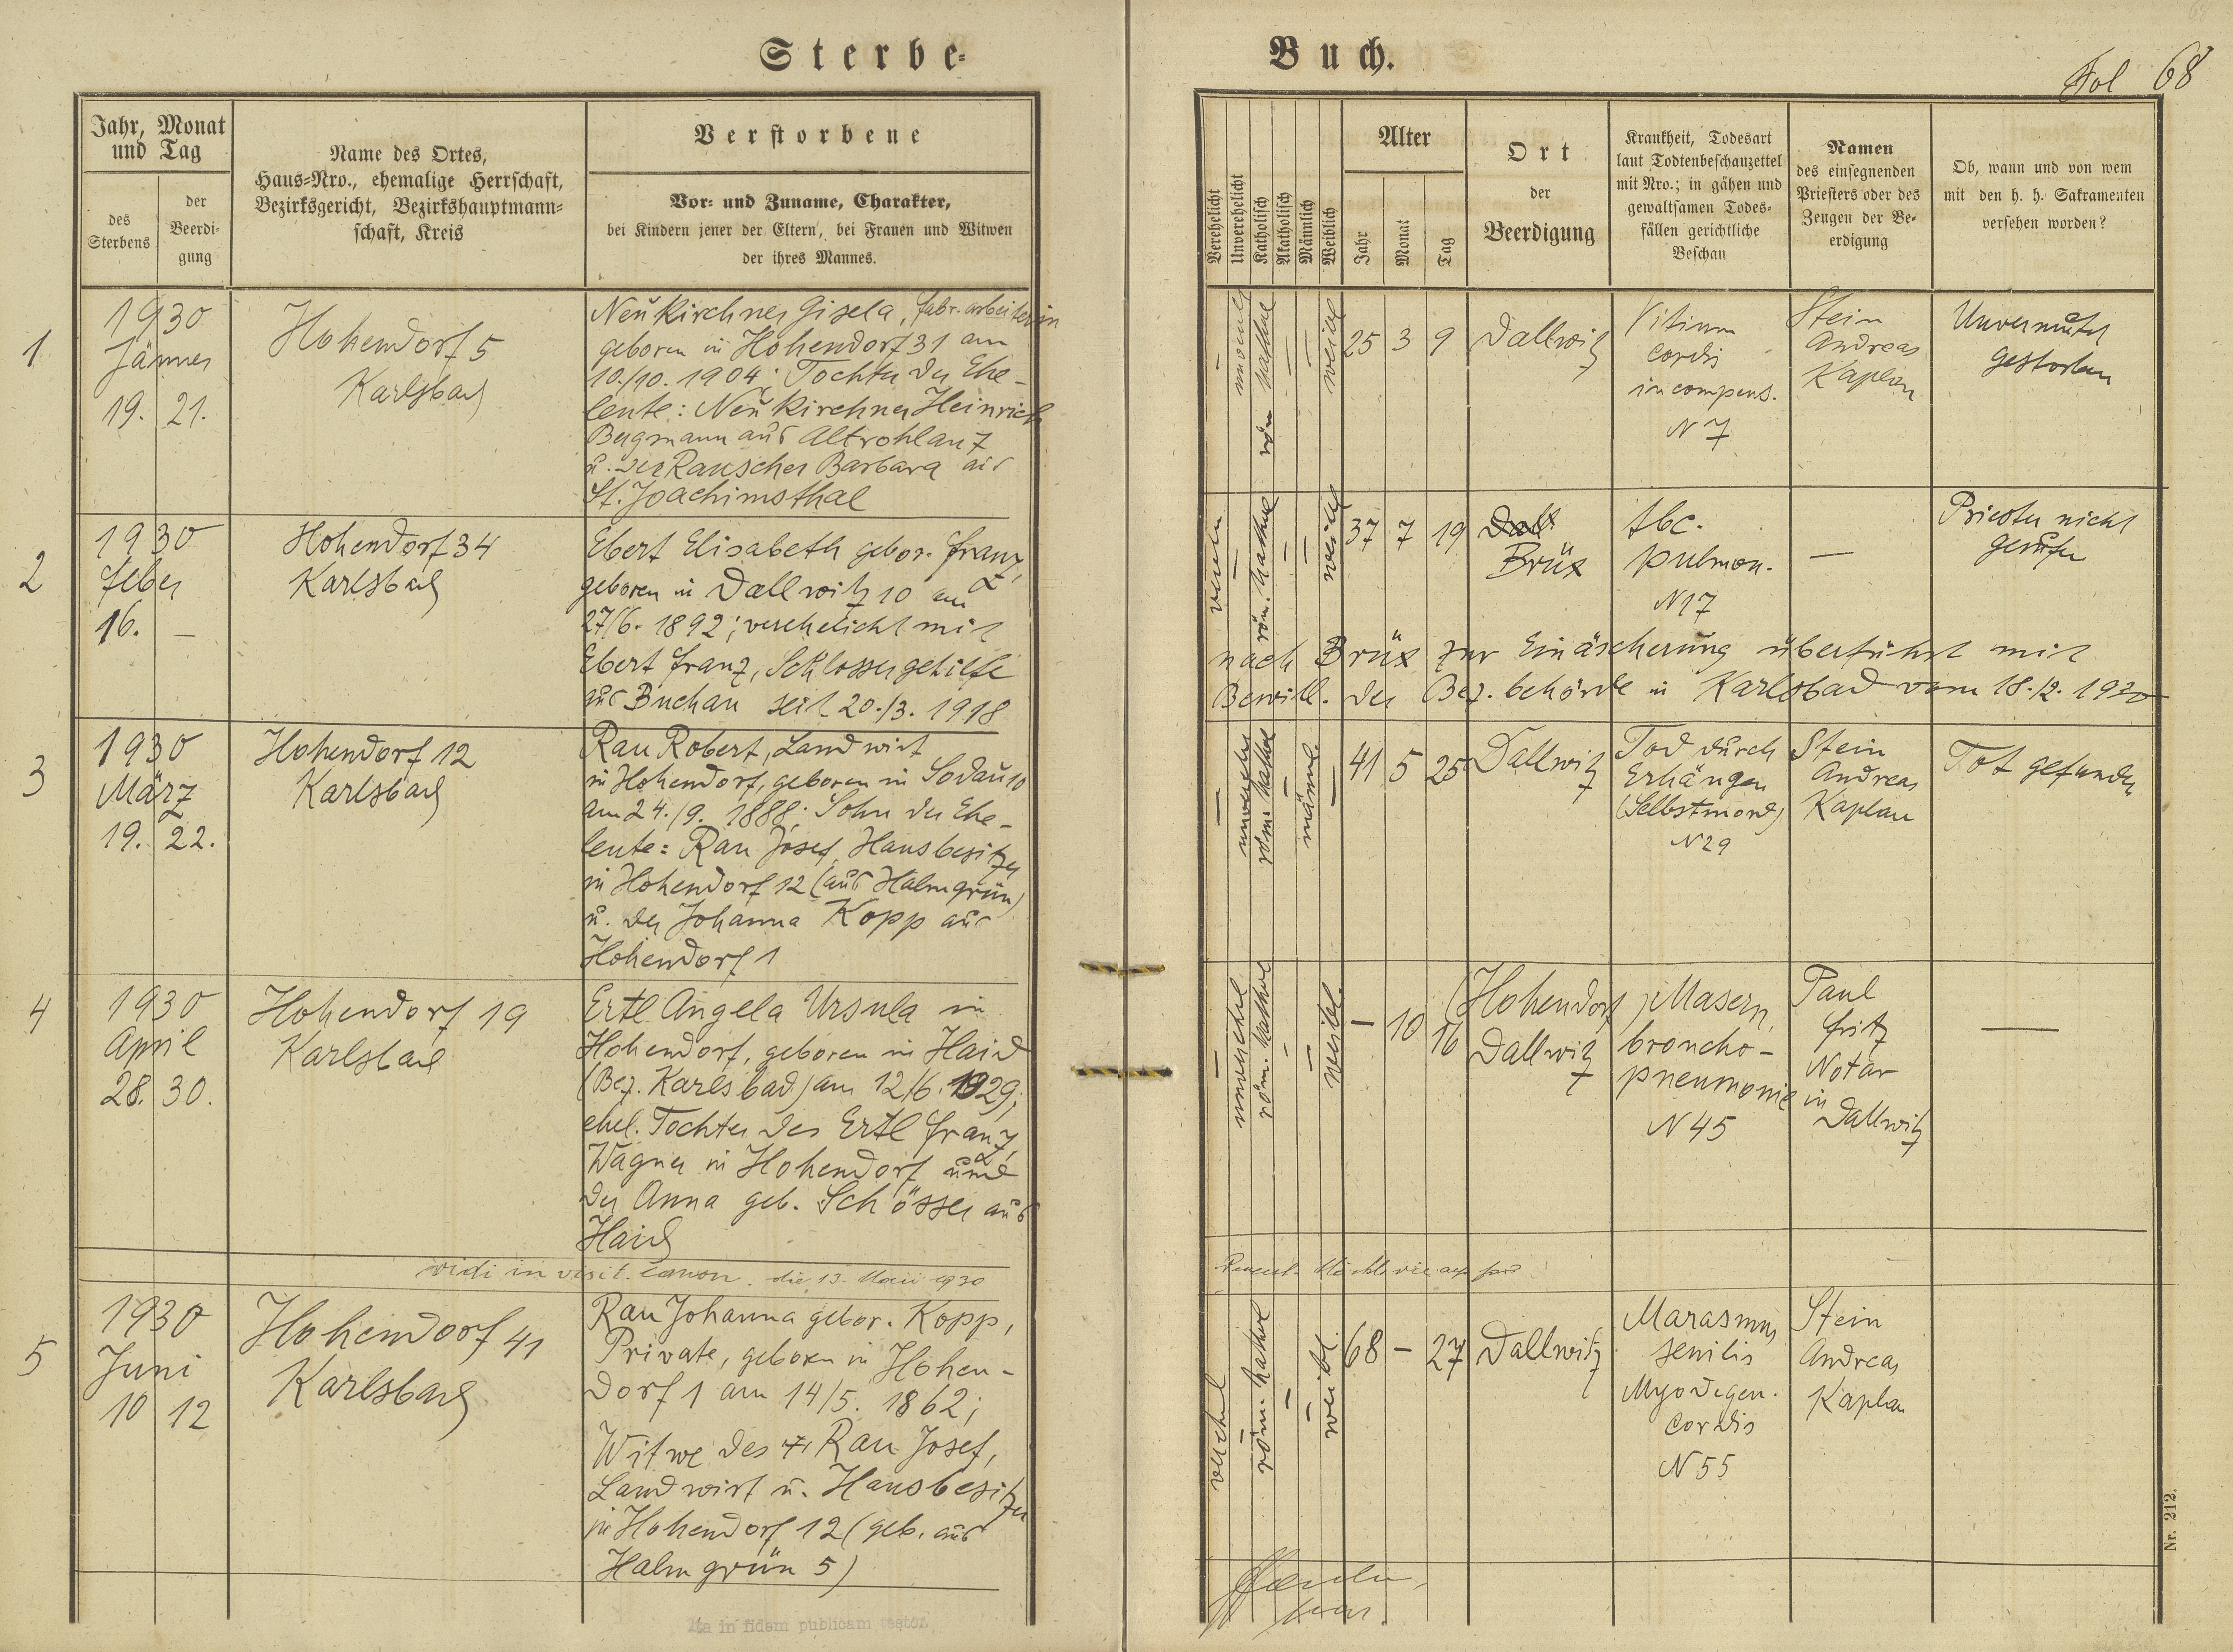 Sterbe-
Buch.
68
Fol 68
Jahr, Monat
und Tag
des
Sterbens
der
Beerdi-
gung
Name des Ortes,
Haus-Nro., ehemalige Herrschaft,
Bezirksgericht, Bezirkshauptmann-
schaft, Kreis
Verstorbene
Vor- und Zuname, Charakter,
bei Kindern jener der Eltern, bei Frauen und Witwen
der ihres Mannes.
Verehelicht
Unverehelicht
Katholisch
Akatholisch
Männlich
Weiblich
Alter
Jahr
Monat
Tag
Ort
der
Beerdigung
Krankheit, Todesart
laut Todtenbeschauzettel
mit Nro.; in gähen und
gewaltsamen Todes-
fällen gerichtliche
Beschau
Namen
des einsegnenden
Priesters oder des
Zeugen der Be-
erdigung
Ob, wann und von wem
mit den h. h. Sakramenten
versehen worden?
1
1930
Jänner
19. 21.
Hohendorf 5
Karlsbad
Neukirchner Gisela, Fabr. arbeiterin
geboren in Hohendorf 31 am
10./10. 1904; Tochter der Ehe-
leute: Neukirchner Heinrich
Bergmann aus Altrohlau 7
u. der Rauscher Barbara aus
St. Joachimsthal
–
röm. kathol
–
–
25 3 9
Dallwitz
Vitium
cordis
incompens.
N 7
Stein
Andreas
Kaplan
Unvermutet
gestorben
2
1930
Feber
16. –
Hohendorf 34
Karlsbad
Ebert Elisabeth gebor. Franz,
geboren in Dallwitz 10 am
27/6. 1892; verehelicht mit
Ebert Franz, Schlossergehilfe
aus Buchau seit 20./3. 1918
–
röm. kathol
–
–
37 7 19
Dall.
Brüx
tbc.
pulmon.
N 17
–
Priester nicht
gerufen
nach Brüx zur Einäscherung überführt mit
Bewill. der Bez. behörde in Karlsbad vom 18./2. 1930
3
1930
März
19. 22.
Hohendorf 12
Karlsbad
Rau Robert, Landwirt
in Hohendorf, geboren in Sodau 10
am 24./9. 1888; Sohn der Ehe-
leute: Rau Josef, Hausbesitzer
in Hohendorf 12 (aus Halmgrün)
u. der Johanna Kopp aus
Hohendorf 1
–
röm. kathol
–
männl.
–
41 5 25
Dallwitz
Tod durch
Erhängen
(Selbstmord)
N 29
Stein
Andreas
Kaplan
Tot gefunden
4
1930
April
28. 30.
Hohendorf 19
Karlsbad
Ertl Angela Ursula in
Hohendorf, geboren in Haid
(Bez. Karlsbad) am 12/6. 1929;
ehel. Tochter des Ertl Franz,
Wagner in Hohendorf und
der Anna geb. Schösser aus
Haid
–
röm. kathol
–
–
weibl.
– 10 16
(Hohendorf)
Dallwitz
Masern,
broncho-
pneumonie
N 45
Paul
Fritz
Notar
in
Dallwitz
–
vidi in visit. canon. die 13. Maii 1930
5
1930
Juni
10 12
Hohendorf 41
Karlsbad
Rau Johanna gebor. Kopp,
Private, geboren in Hohen-
dorf 1 am 14/5. 1862;
Witwe des + Rau Josef,
Landwirt u. Hausbesitzer
in Hohendorf 12 (geb. aus
Halmgrün 5)
–
röm. kathol
–
–
weibl.
68 – 27
Dallwitz
Marasmus
senilis
Myodegen.
cordis
N 55
Stein
Andreas
Kaplan
Nr. 212.
Ita in fidem publicam testor.